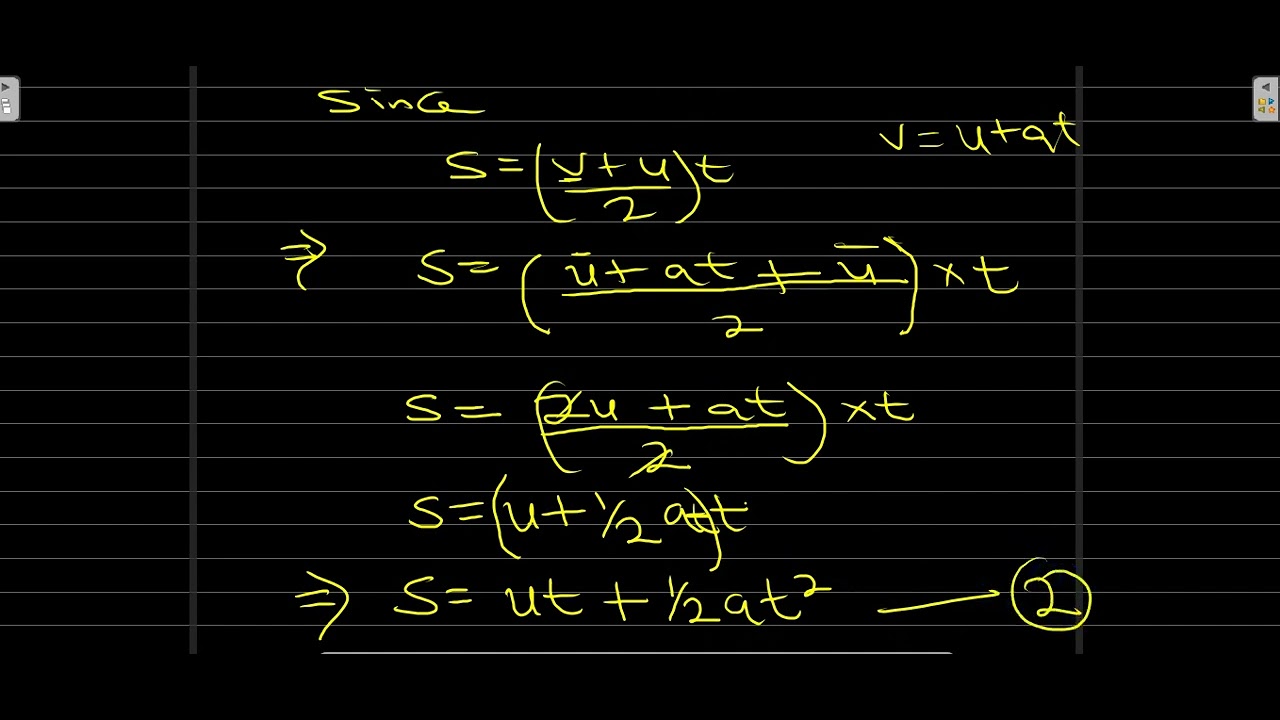 Since
v = u + at
S = (v + u / 2) t
⇒ S = (u + at + u / 2) × t
S = (2u + at / 2) × t
S = (u + 1/2 at) t
⇒ S = ut + 1/2 at² — 2